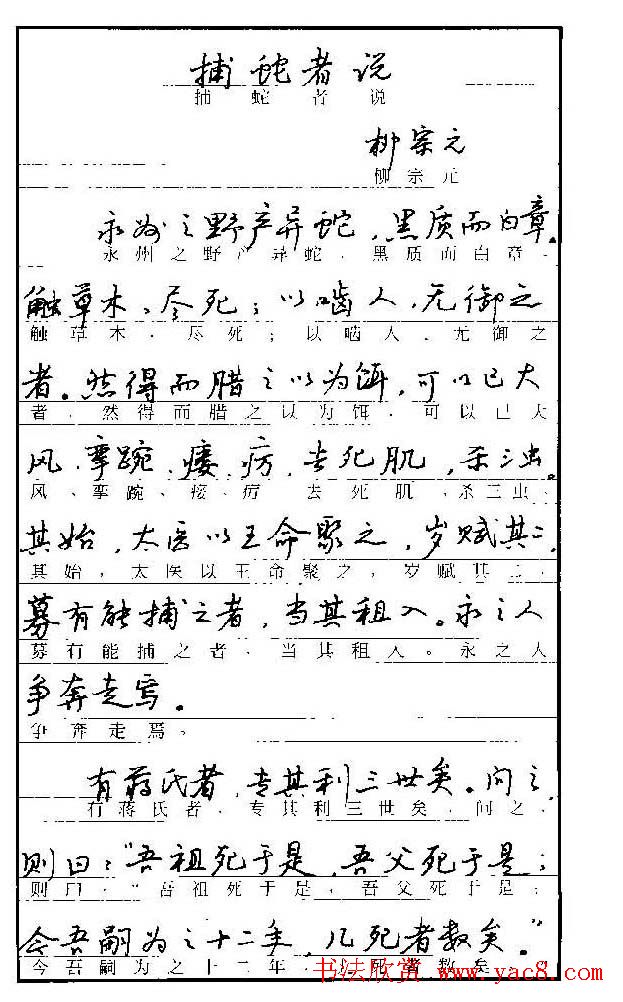 捕蛇者说
捕蛇者说
柳宗元
柳宗元
永州之野产异蛇，黑质而白章。
永州之野产异蛇，黑质而白章，
触草木，尽死；以啮人，无御之
触草木，尽死；以啮人，无御之
者。然得而腊之以为饵，可以已大
者，然得而腊之以为饵，可以已大
风、挛踠、瘘、疠，去死肌，杀三虫。
风、挛踠、瘘、疠，去死肌，杀三虫。
其始，太医以王命聚之，岁赋其二，
其始，太医以王命聚之，岁赋其二，
募有能捕之者，当其租入。永之人
募有能捕之者，当其租入。永之人
争奔走焉。
争奔走焉。
有蒋氏者，专其利三世矣。问之，
有蒋氏者，专其利三世矣。问之，
则曰：“吾祖死于是，吾父死于是；
则曰：“吾祖死于是，吾父死于是；
今吾嗣为之十二年，几死者数矣。”
今吾嗣为之十二年，死者数矣
书法欣赏 www.yac8.com